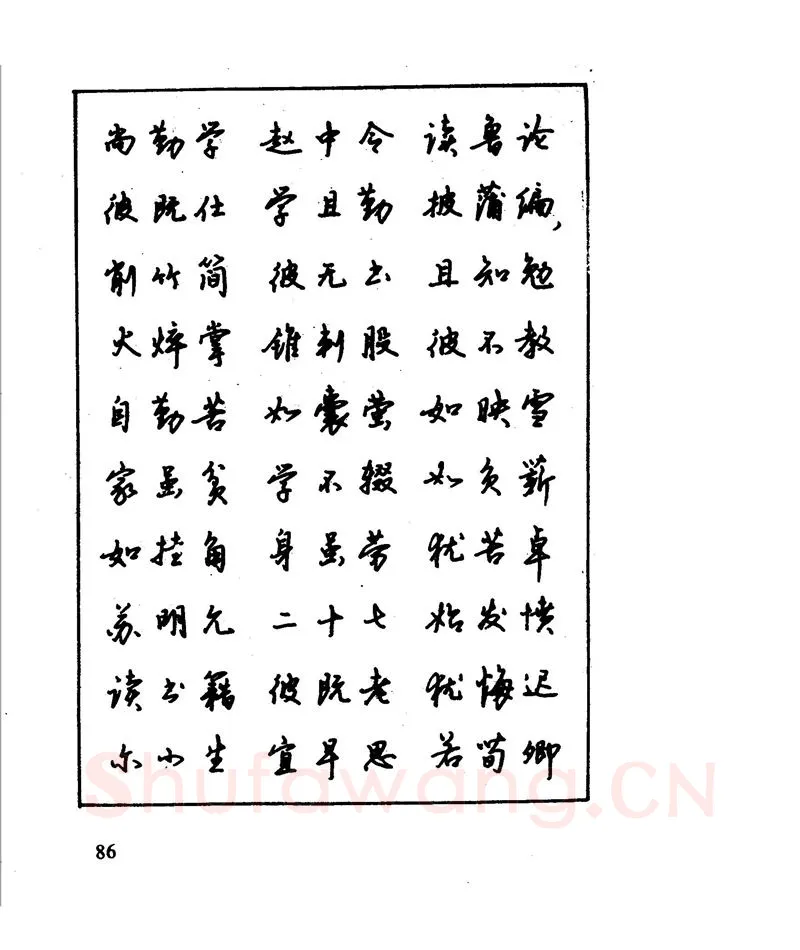 尚勤学 赵中令 读鲁论
彼既仕 学且勤 披蒲编,
削竹简 彼无书 且知勉
火焠掌 锥刺股 彼不教
自勤苦 如囊萤 如映雪
家虽贫 学不辍 如负薪
如挂角 身虽劳 犹苦卓
苏明允 二十七 始发愤
读书籍 彼既老 犹悔迟
尔小生 宜早思 若荀卿
Shufawang.CN
86